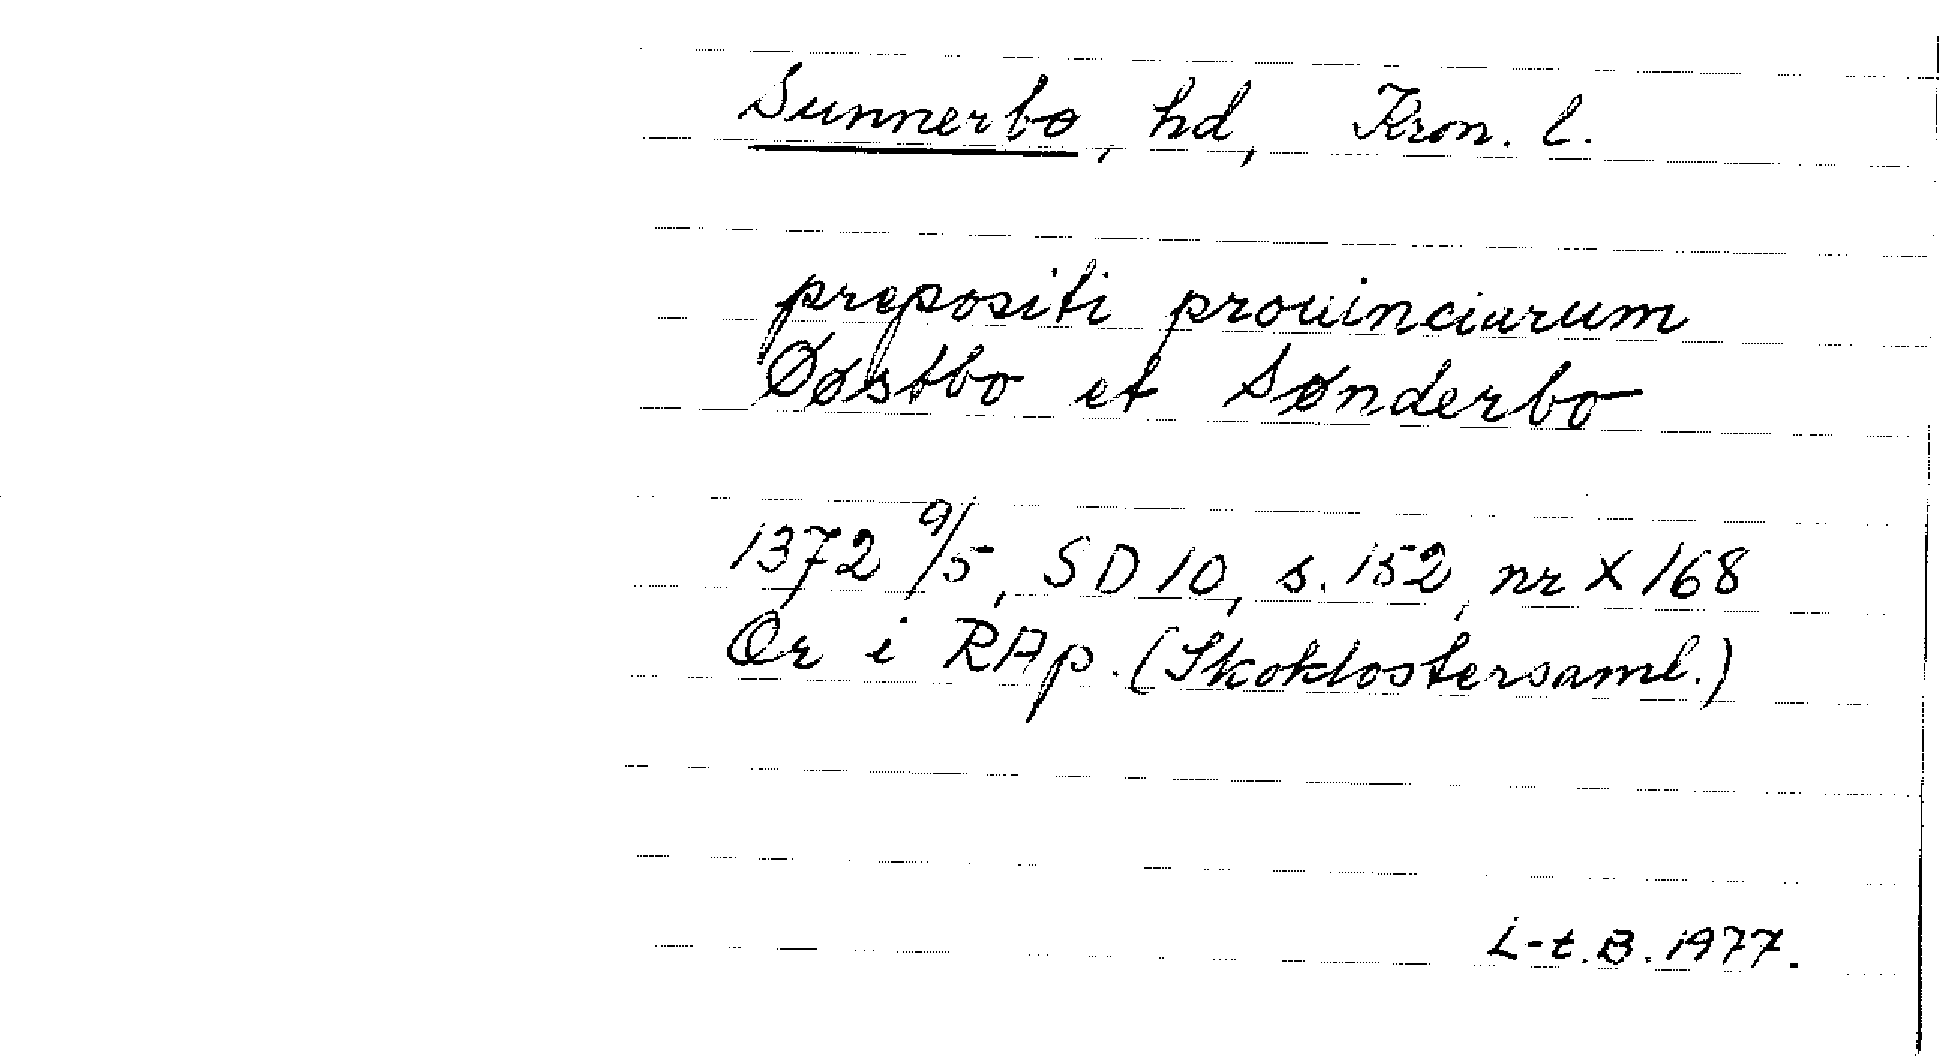 Sunnerbo, hd, Kron. l.
prepositi prouinciarum
Øøstbo et Sønderbo
1372 9/5, SD 10, s. 152, nr X 168
Or i RAp. (Skoklostersaml.)
L-t. B. 1977.